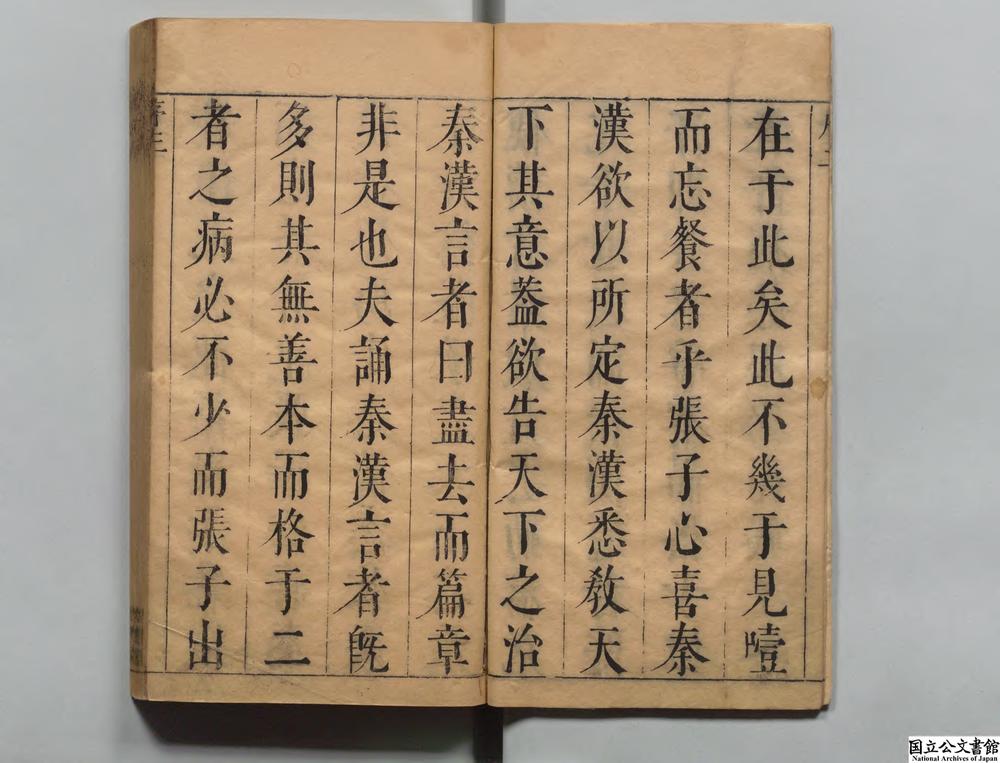 在于此矣此不幾于見噎
而忘餐者乎張子心喜秦
漢欲以所定秦漢悉教天
下其意葢欲告天下之治
秦漢言者曰盡去而篇章
非是也夫誦秦漢言者旣
多則其無善本而格于二
者之病必不少而張子出
序三
国立公文書館
National Archives of Japan